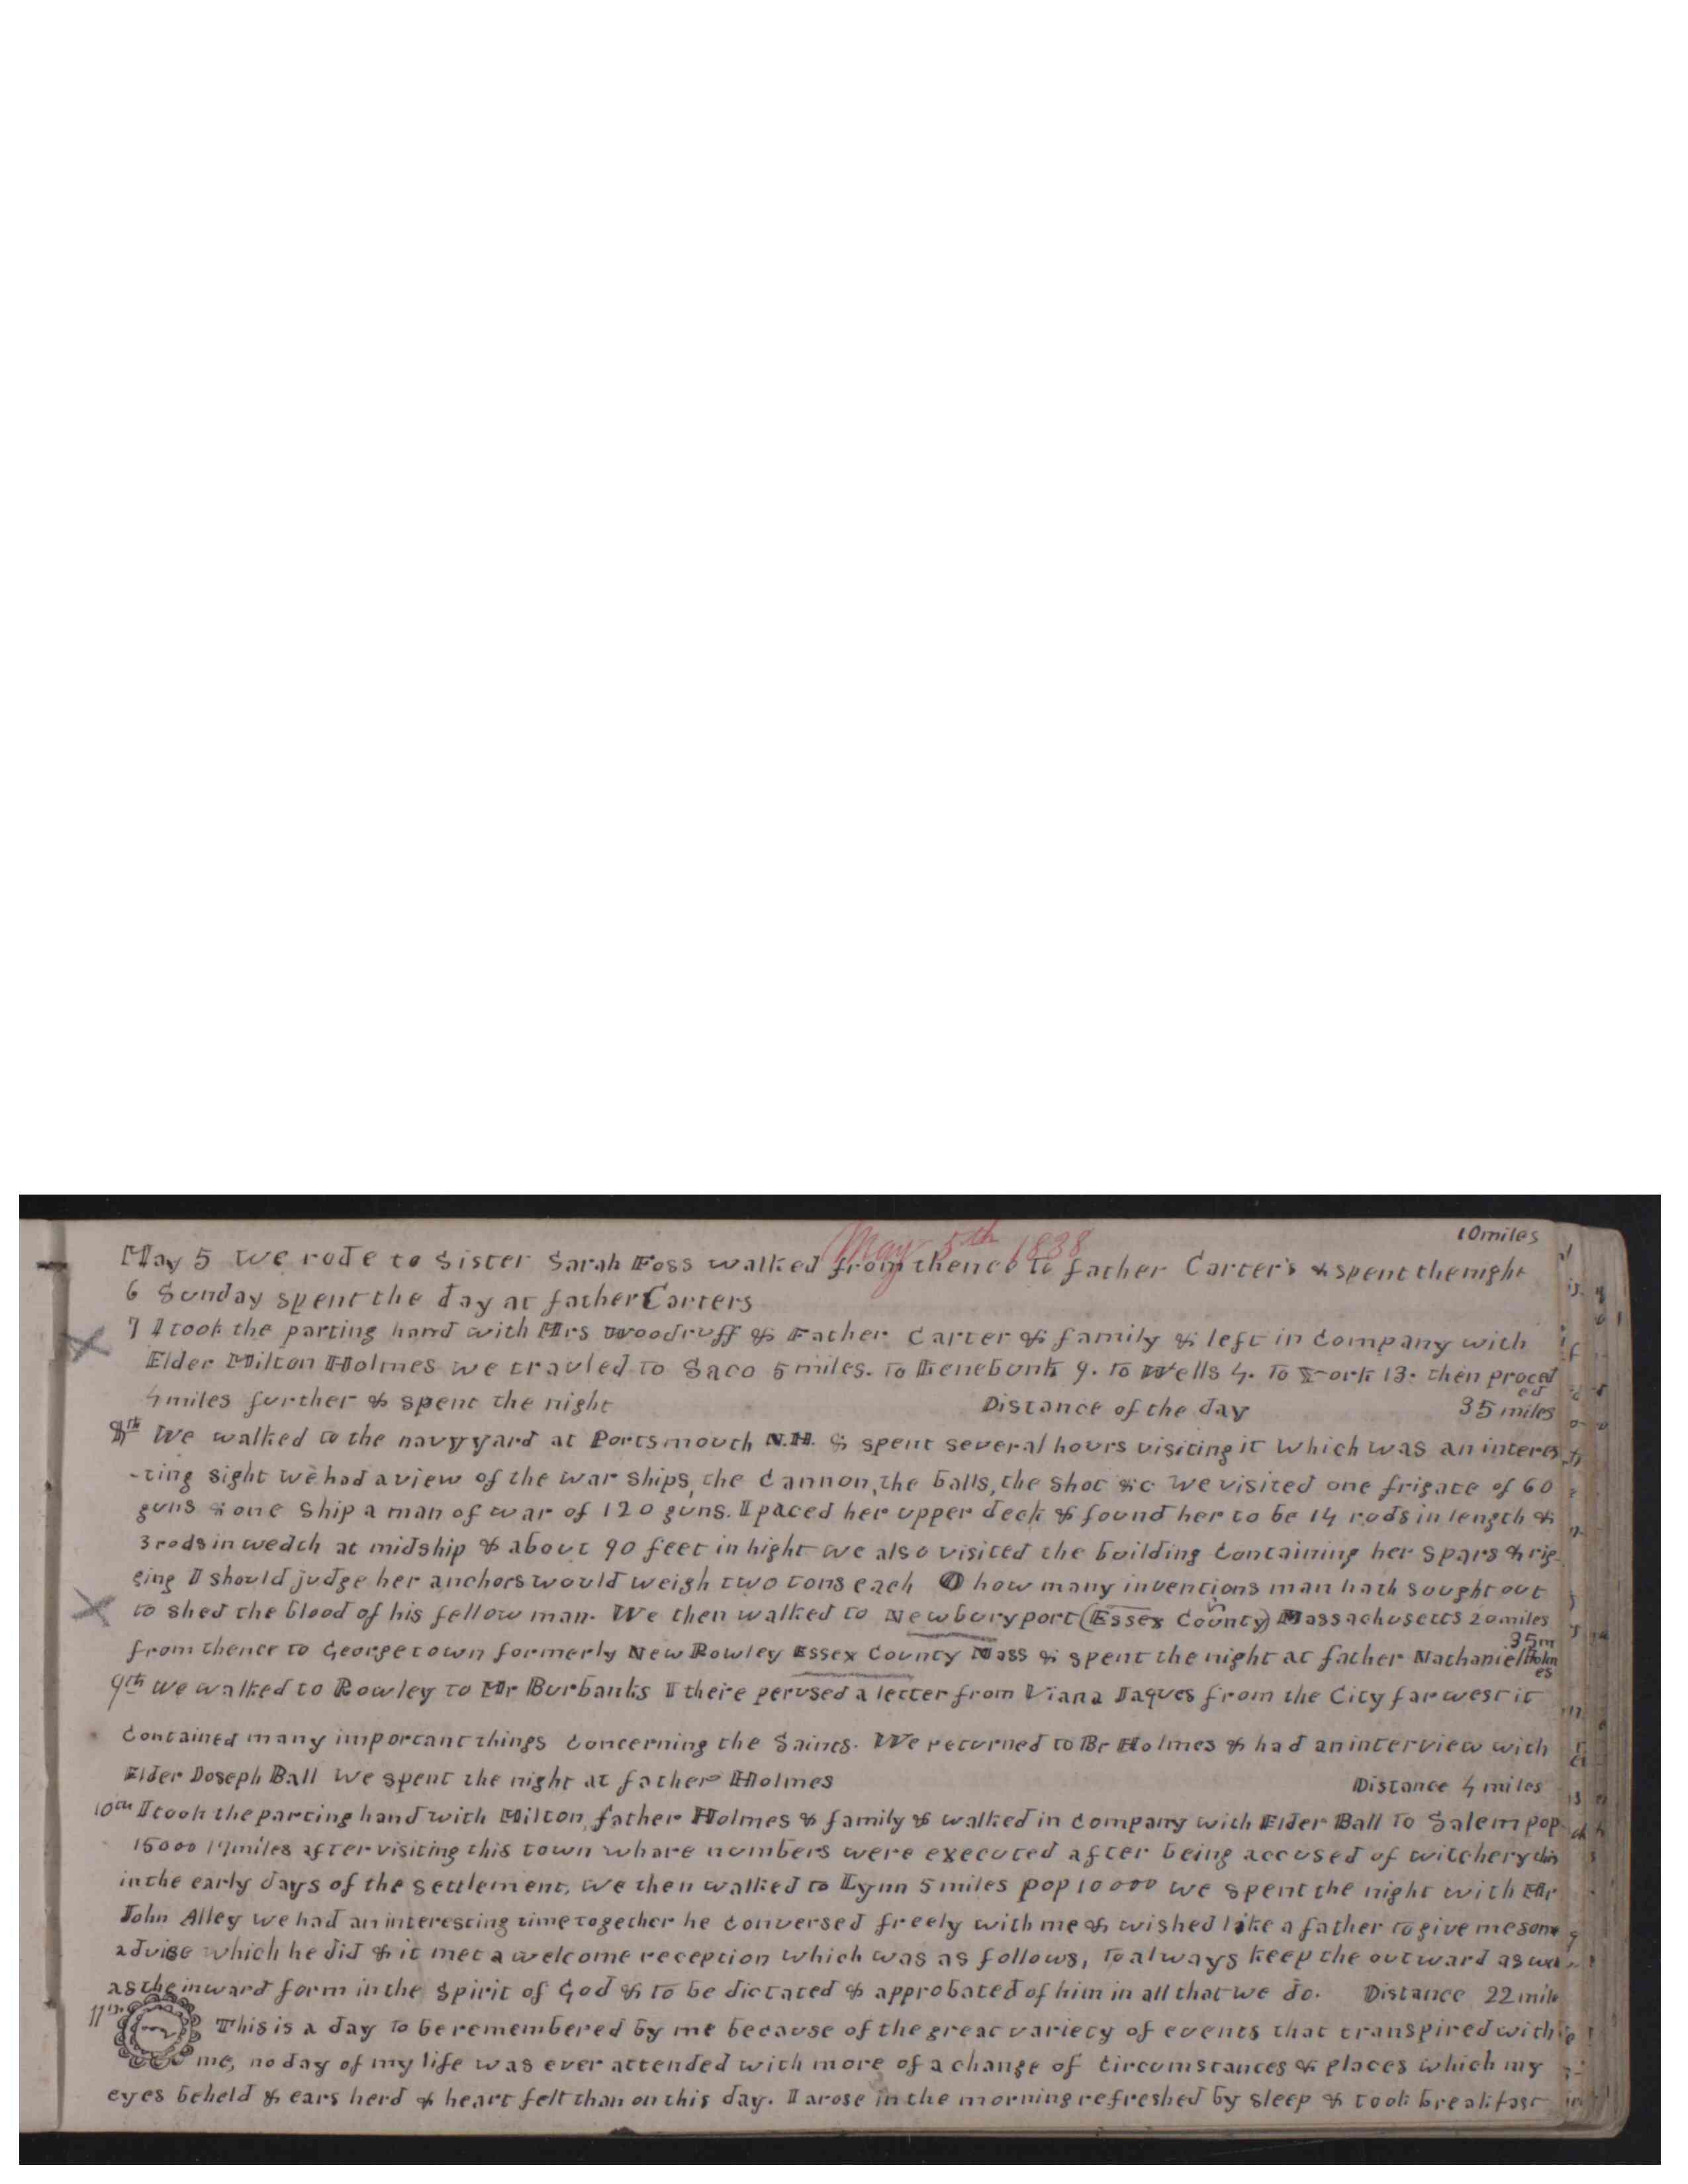 May 5th 1838
10 miles
May 5 We rode to Sister Sarah Foss walked from thence to father Carter's & spent the night
6 Sunday spent the day at father Carters
7 I took the parting hand with Mrs Woodruff & Father Carter & family & left in Company with
Elder Milton Holmes we travled to Saco 5 miles. To Kenebunk 9. to Wells 4. To York 13. then proced
ed
4 miles further & spent the night Distance of the day 35 miles
8th We walked to the navy yard at Portsmouth N.H. & spent several hours visiting it which was an interes
-ting sight we had a view of the war ships, the Cannon, the balls, the shot &c We visited one frigate of 60
guns & one Ship a man of war of 120 guns. I paced her upper deck & found her to be 14 rods in length &
3 rods in wedth at midship & about 90 feet in hight we also visited the building Containing her spars & rig
ging I should judge her anchors would weigh two tons each O how many inventions man hath sought out
to shed the blood of his fellow man. We then walked to Newburyport (Essex County) Massachusetts 20 miles
35 m
from thence to Georgetown formerly New Rowley Essex County Mass & spent the night at father Nathaniel Holm
es
9th We walked to Rowley to Mr Burbanks I there perused a letter from Viana Jaques from the City far west it
Contained many important things Concerning the Saints. We returned to Br Holmes & had an interview with
Elder Joseph Ball We spent the night at father Holmes Distance 4 miles
10th I took the parting hand with Milton, father Holmes & family & walked in Company with Elder Ball To Salem pop
15000 17 miles after visiting this town whare numbers were executed after being accused of witchery this
in the early days of the settlement, we then walked to Lynn 5 miles pop 10000 we spent the night with Mr
John Alley we had an interesting time together he Conversed freely with me & wished like a father to give me some
advise which he did & it met a welcome reception which was as follows, To always keep the outward as wel
as the inward form in the Spirit of God & to be dictated & approbated of him in all that we do. Distance 22 mile
11th This is a day to be remembered by me because of the great variety of events that transpired with
me, no day of my life was ever attended with more of a change of Circumstances & places which my
eyes beheld & ears herd & heart felt than on this day. I arose in the morning refreshed by sleep & took breakfast